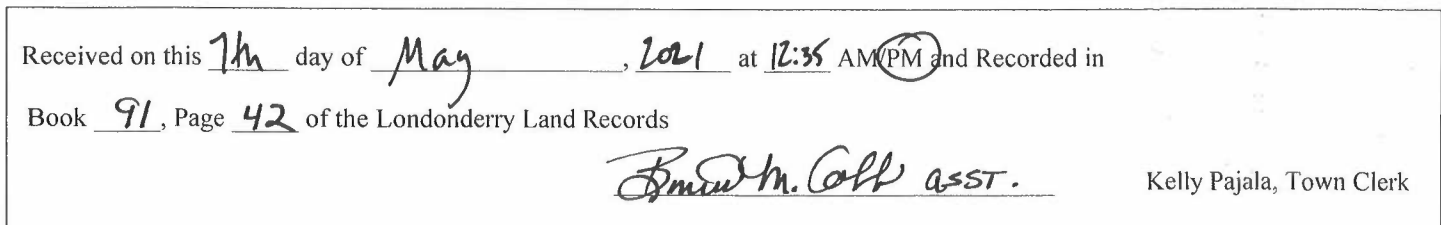 Received on this 7th day of May, 2021 at 12:35 AM/PM and Recorded in
Book 91, Page 42 of the Londonderry Land Records
M. asst. Kelly Pajala, Town Clerk